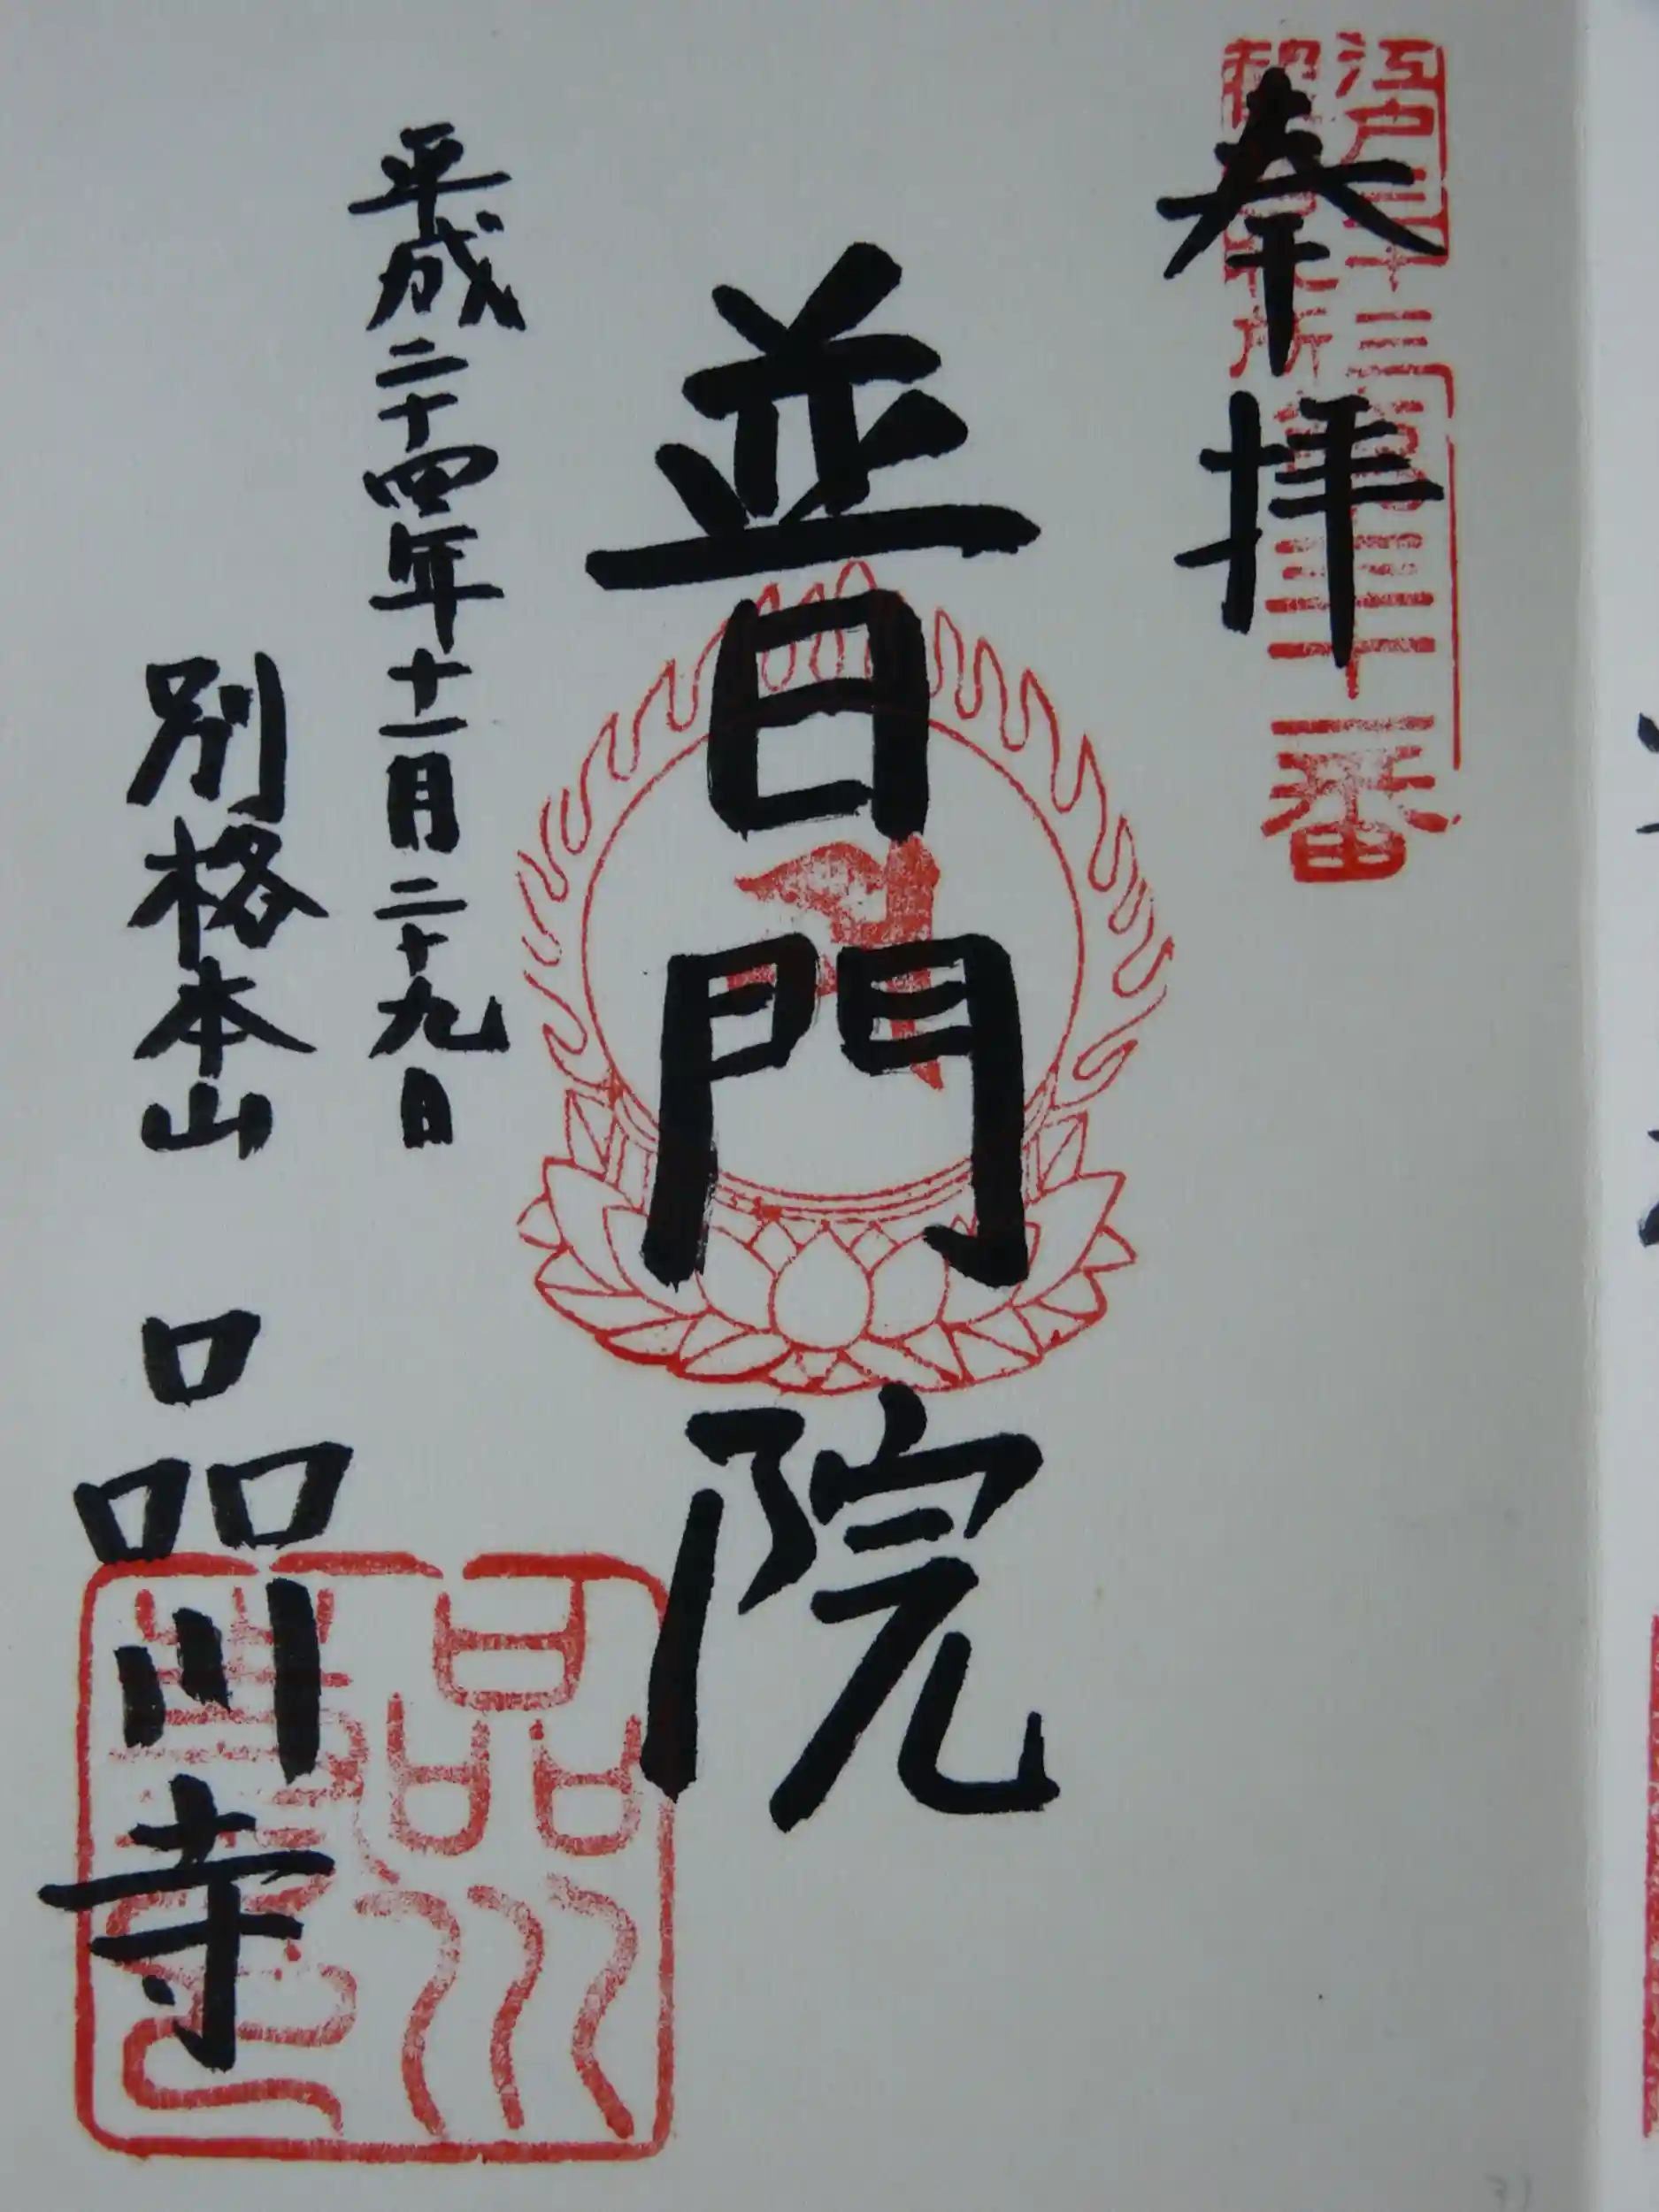 奉拝
江戸三十三
観音札所
第三十一番
普門院
平成二十四年十一月二十九日
別格本山
品川寺